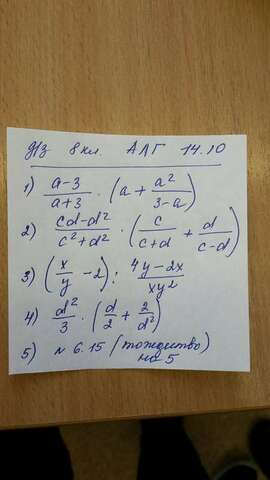 д/з 8 кл. АЛГ 14.10
1) (a-3)/(a+3) · (a + a²/(3-a))
2) (cd-d²)/(c²+d²) · (c/(c+d) + d/(c-d))
3) (x/y - 2) : (4y-2x)/(xy²)
4) d²/3 · (d/2 + 2/d²)
5) № 6.15 (тождество)
на 5